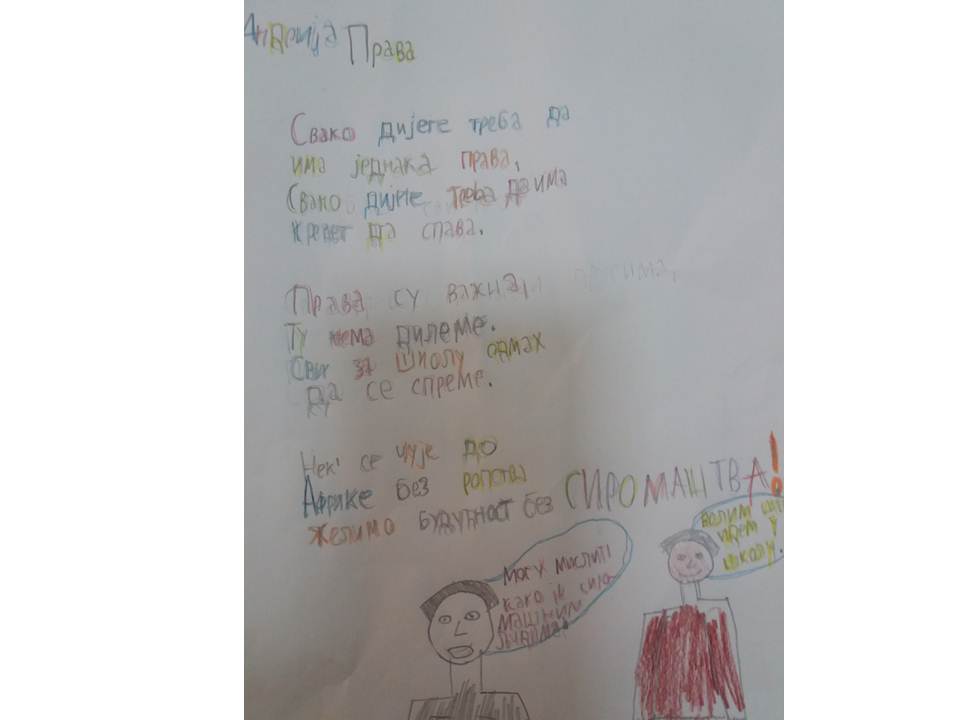 Андрија Права
Свако дијете треба да
има једнака права,
Свако дијете треба да има
кревет да спава.
Права су важна,
Ту нема дилеме.
Сви за школу одмах
да се спреме.
Нек' се чује до
Африке без ропства
Желимо будућност без СИРОМАШТВА!
Могу мислити
како је сиро
машним
људима!
Волим
идем у
школу.